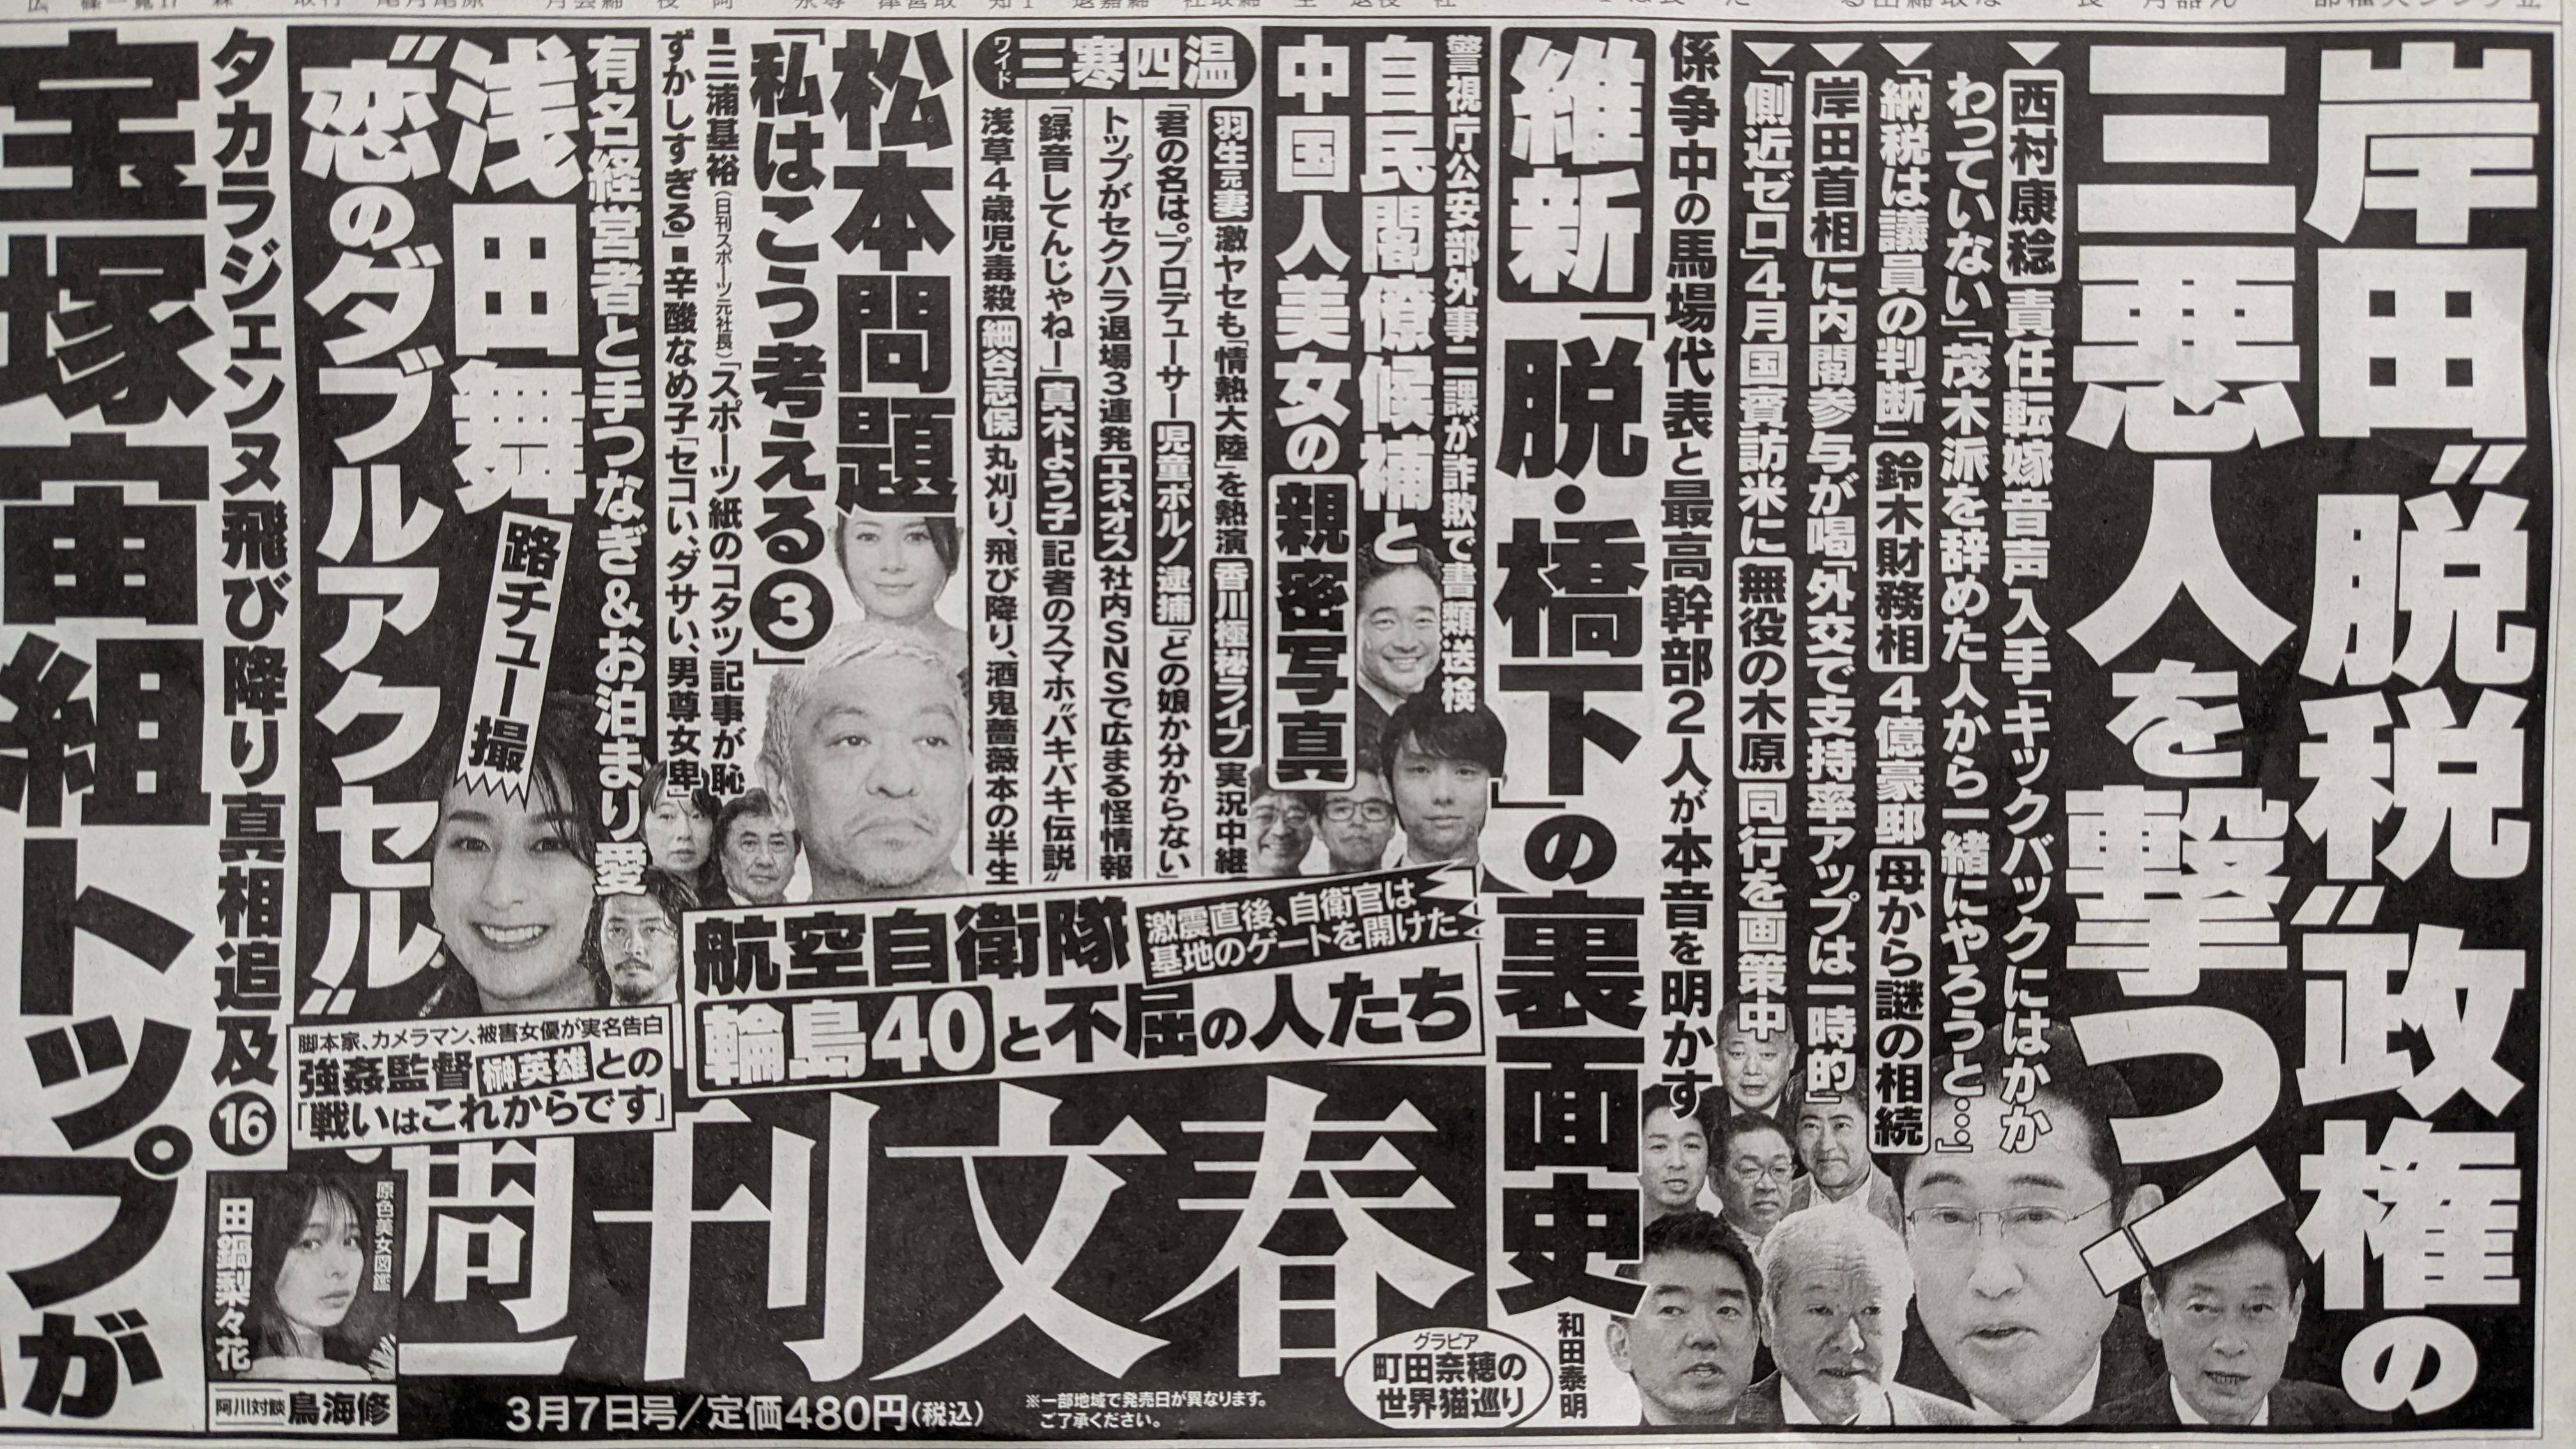 岸田〝脱税〟政権の
三悪人を撃つ!
▼西村康稔 責任転嫁音声入手「キックバックにはかか
わっていない」「茂木派を辞めた人から一緒にやろうと…」
▼「納税は議員の判断」鈴木財務相 4億豪邸 母から謎の相続
▼岸田首相に内閣参与が喝「外交で支持率アップは一時的」
▼「側近ゼロ」4月国賓訪米に無役の木原 同行を画策中
係争中の馬場代表と最高幹部2人が本音を明かす
維新「脱・橋下」の裏面史
和田泰明
警視庁公安部外事二課が詐欺で書類送検
自民閣僚候補と
中国人美女の親密写真
ワイド 三寒四温
羽生元妻 激ヤセも「情熱大陸」を熱演 香川極秘ライブ 実況中継
「君の名は。」プロデューサー 児童ポルノ逮捕「どの娘か分からない」
トップがセクハラ退場3連発 エネオス 社内SNSで広まる怪情報
「録音してんじゃねー」真木よう子 記者のスマホ〝バキバキ伝説〟
浅草4歳児毒殺 細谷志保 丸刈り、飛び降り、酒鬼薔薇本の半生
松本問題
「私はこう考える③」
■三浦基裕(日刊スポーツ元社長)「スポーツ紙のコタツ記事が恥
ずかしすぎる」■辛酸なめ子「セコい、ダサい、男尊女卑」
有名経営者と手つなぎ&お泊まり愛
浅田舞
路チュー撮
〝恋のダブルアクセル〟
航空自衛隊
激震直後、自衛官は
基地のゲートを開けた
輪島40と不屈の人たち
脚本家、カメラマン、被害女優が実名告白
強姦監督 榊英雄との
「戦いはこれからです」
タカラジェンヌ飛び降り真相追及⑯
宝塚宙組トップが
原色美女図鑑
田鍋梨々花
阿川対談 鳥海修
週刊文春
3月7日号/定価480円(税込)
※一部地域で発売日が異なります。
ご了承ください。
グラビア
町田奈穂の
世界猫巡り